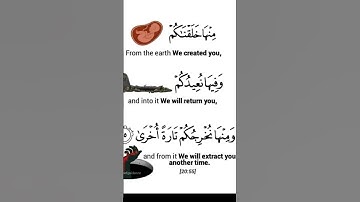 مِنْهَا خَلَقْنَٰكُمْ
From the earth We created you,
وَفِيهَا نُعِيدُكُمْ
and into it We will return you,
وَمِنْهَا نُخْرِجُكُمْ تَارَةً أُخْرَىٰ
and from it We will extract you
another time.
[20:55]